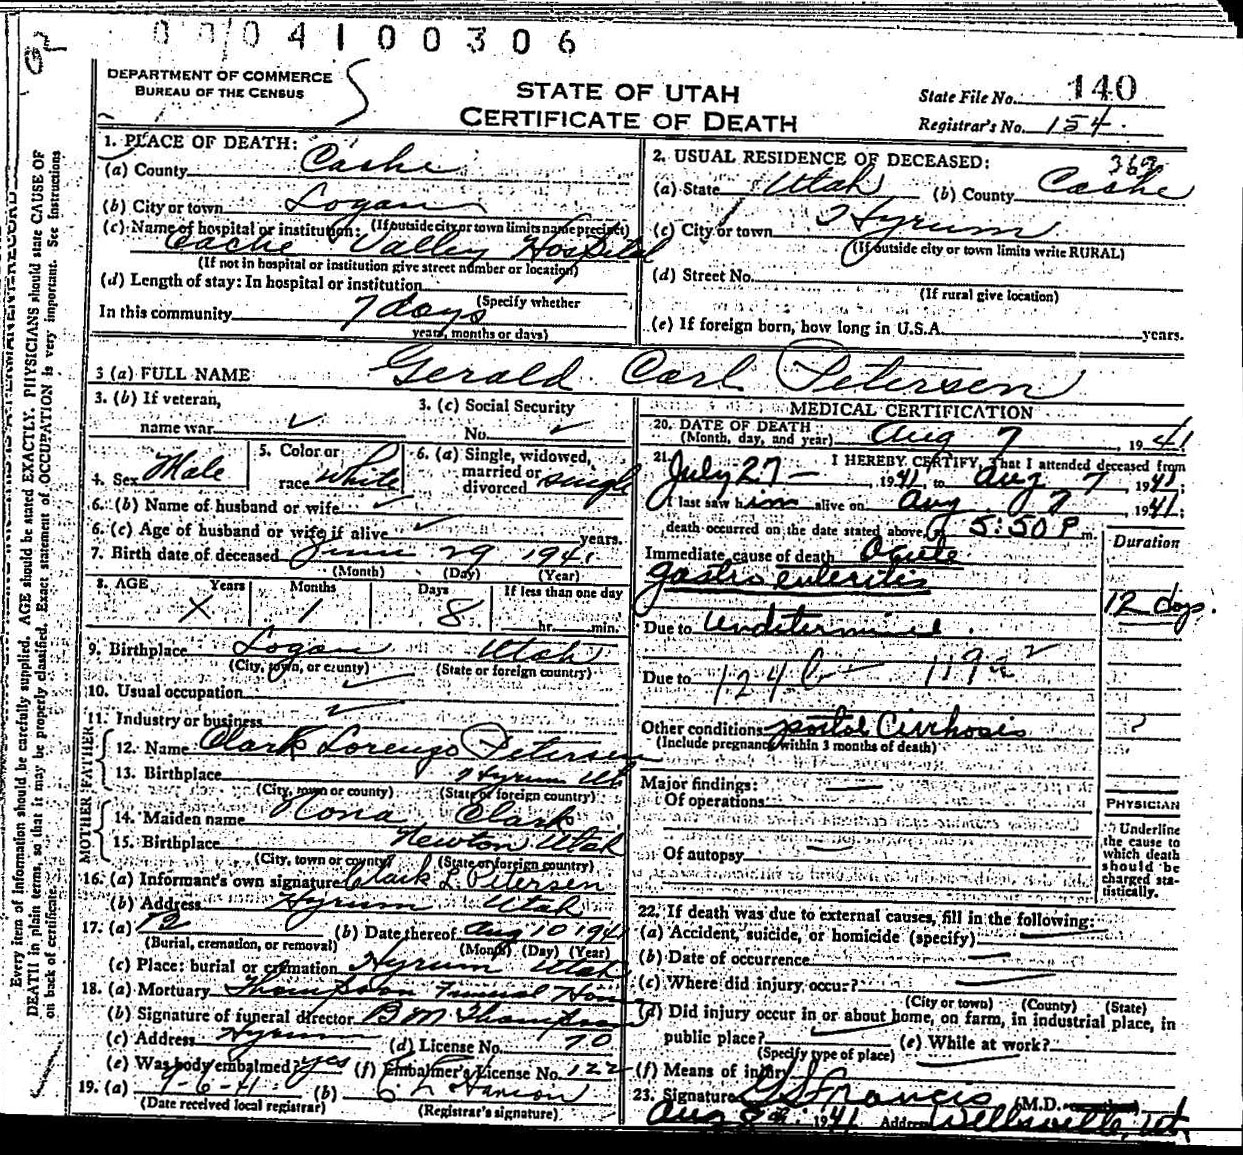 0004100306
DEPARTMENT OF COMMERCE
BUREAU OF THE CENSUS
STATE OF UTAH
CERTIFICATE OF DEATH
State File No. 140
Registrar's No. 154
1. PLACE OF DEATH:
(a) County Cache
(b) City or town Logan
(c) Name of hospital or institution: (If outside city or town limits name precinct)
Cache Valley Hospital
(If not in hospital or institution give street number or location)
(d) Length of stay: In hospital or institution
(Specify whether
In this community 7 days
years, months or days)
2. USUAL RESIDENCE OF DECEASED:
369
(a) State Utah (b) County Cache
(c) City or town Hyrum
(If outside city or town limits write RURAL)
(d) Street No.
(If rural give location)
(e) If foreign born, how long in U.S.A. years.
3 (a) FULL NAME Gerald Carl Petersen
3. (b) If veteran,
name war
3. (c) Social Security
No.
4. Sex Male
5. Color or
race White
6. (a) Single, widowed,
married or
divorced single
6. (b) Name of husband or wife
6. (c) Age of husband or wife if alive years.
7. Birth date of deceased June 29 1941
(Month) (Day) (Year)
8. AGE Years Months Days If less than one day
X 1 8 hr. min.
9. Birthplace Logan Utah
(City, town, or county) (State or foreign country)
10. Usual occupation
11. Industry or business
FATHER
12. Name Clark Lorenzo Petersen
13. Birthplace Hyrum Ut
(City, town or county) (State of foreign country)
MOTHER
14. Maiden name Nona Clark
15. Birthplace Newton Utah
(City, town or county) (State or foreign country)
16. (a) Informant's own signature Clark L. Petersen
(b) Address Hyrum Utah
17. (a) B (b) Date thereof Aug 10 1941
(Burial, cremation, or removal) (Month) (Day) (Year)
(c) Place: burial or cremation Hyrum Utah
18. (a) Mortuary Thompson Funeral Home
(b) Signature of funeral director B M Thompson
(c) Address Hyrum (d) License No. 70
(e) Was body embalmed? yes (f) Embalmer's License No. 122
19. (a) 9-6-41 (b) C. L. Hanson
(Date received local registrar) (Registrar's signature)
MEDICAL CERTIFICATION
20. DATE OF DEATH
(Month, day, and year) Aug 7, 1941
21. I HEREBY CERTIFY, That I attended deceased from
July 27 -, 1941, to Aug 7 1941;
I last saw him alive on Aug 7, 1941;
death occurred on the date stated above, 5:50 P m.
Duration
Immediate cause of death Acute
gastro enteritis
12 days.
Due to Undetermined.
Due to 124 b 119a
Other conditions portal Cirrhosis ?
(Include pregnancy within 3 months of death)
Major findings:
Of operations
Of autopsy
PHYSICIAN
Underline
the cause to
which death
should be
charged sta-
tistically.
22. If death was due to external causes, fill in the following:
(a) Accident, suicide, or homicide (specify)
(b) Date of occurrence
(c) Where did injury occur?
(City or town) (County) (State)
(d) Did injury occur in or about home, on farm, in industrial place, in
public place? (e) While at work?
(Specify type of place)
(f) Means of injury
23. Signature G S Francis (M.D.
Aug 8th. 1941 Address Wellsville, Ut.
Every item of information should be carefully supplied. AGE should be stated EXACTLY. PHYSICIANS should state CAUSE OF
DEATH in plain terms, so that it may be properly classified. Exact statement of OCCUPATION is very important. See instructions
on back of certificate.